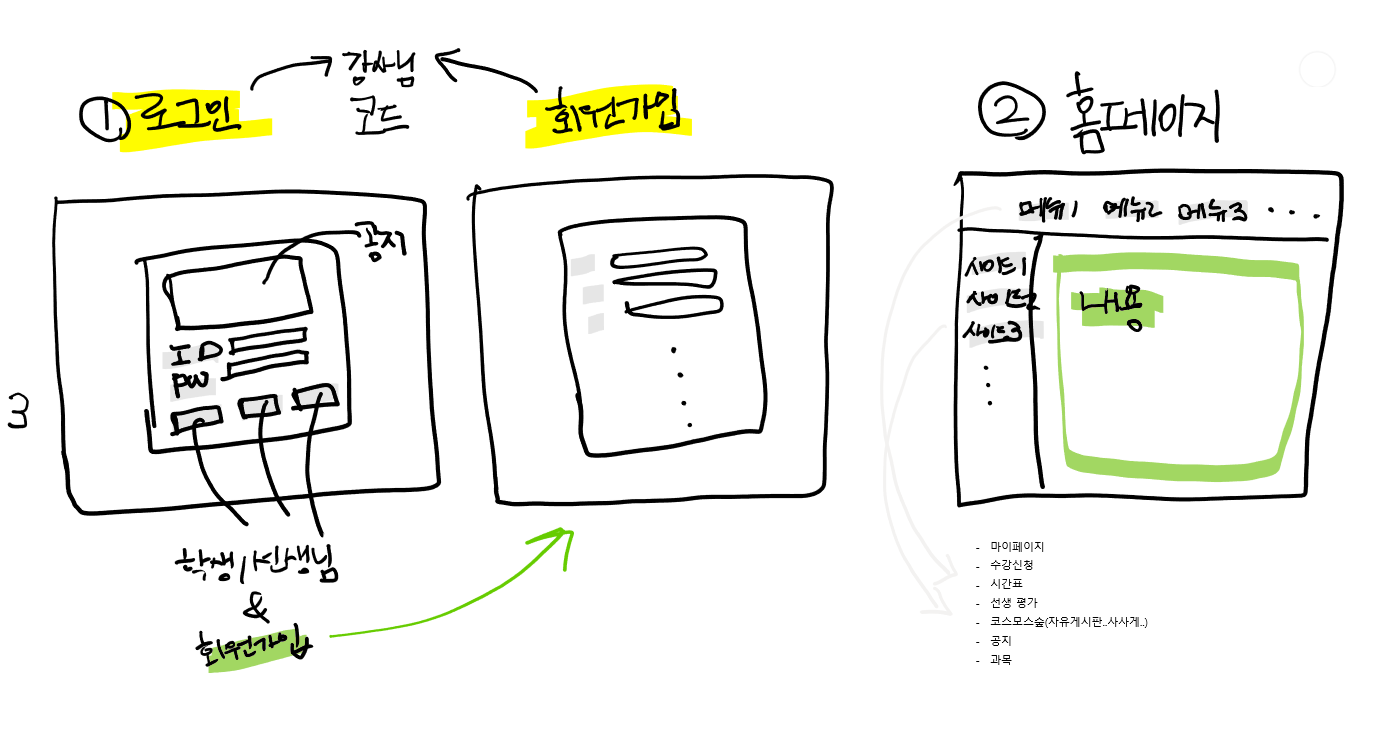 ① 로그인
강사님
코드
회원가입
공지
ID
PW
학생/선생님
&
회원가입
② 홈페이지
메뉴1 메뉴2 메뉴3 ....
사이드1
사이드2
사이드3
내용
- 마이페이지
- 수강신청
- 시간표
- 선생 평가
- 코스모스숲(자유게시판..사사게..)
- 공지
- 과목